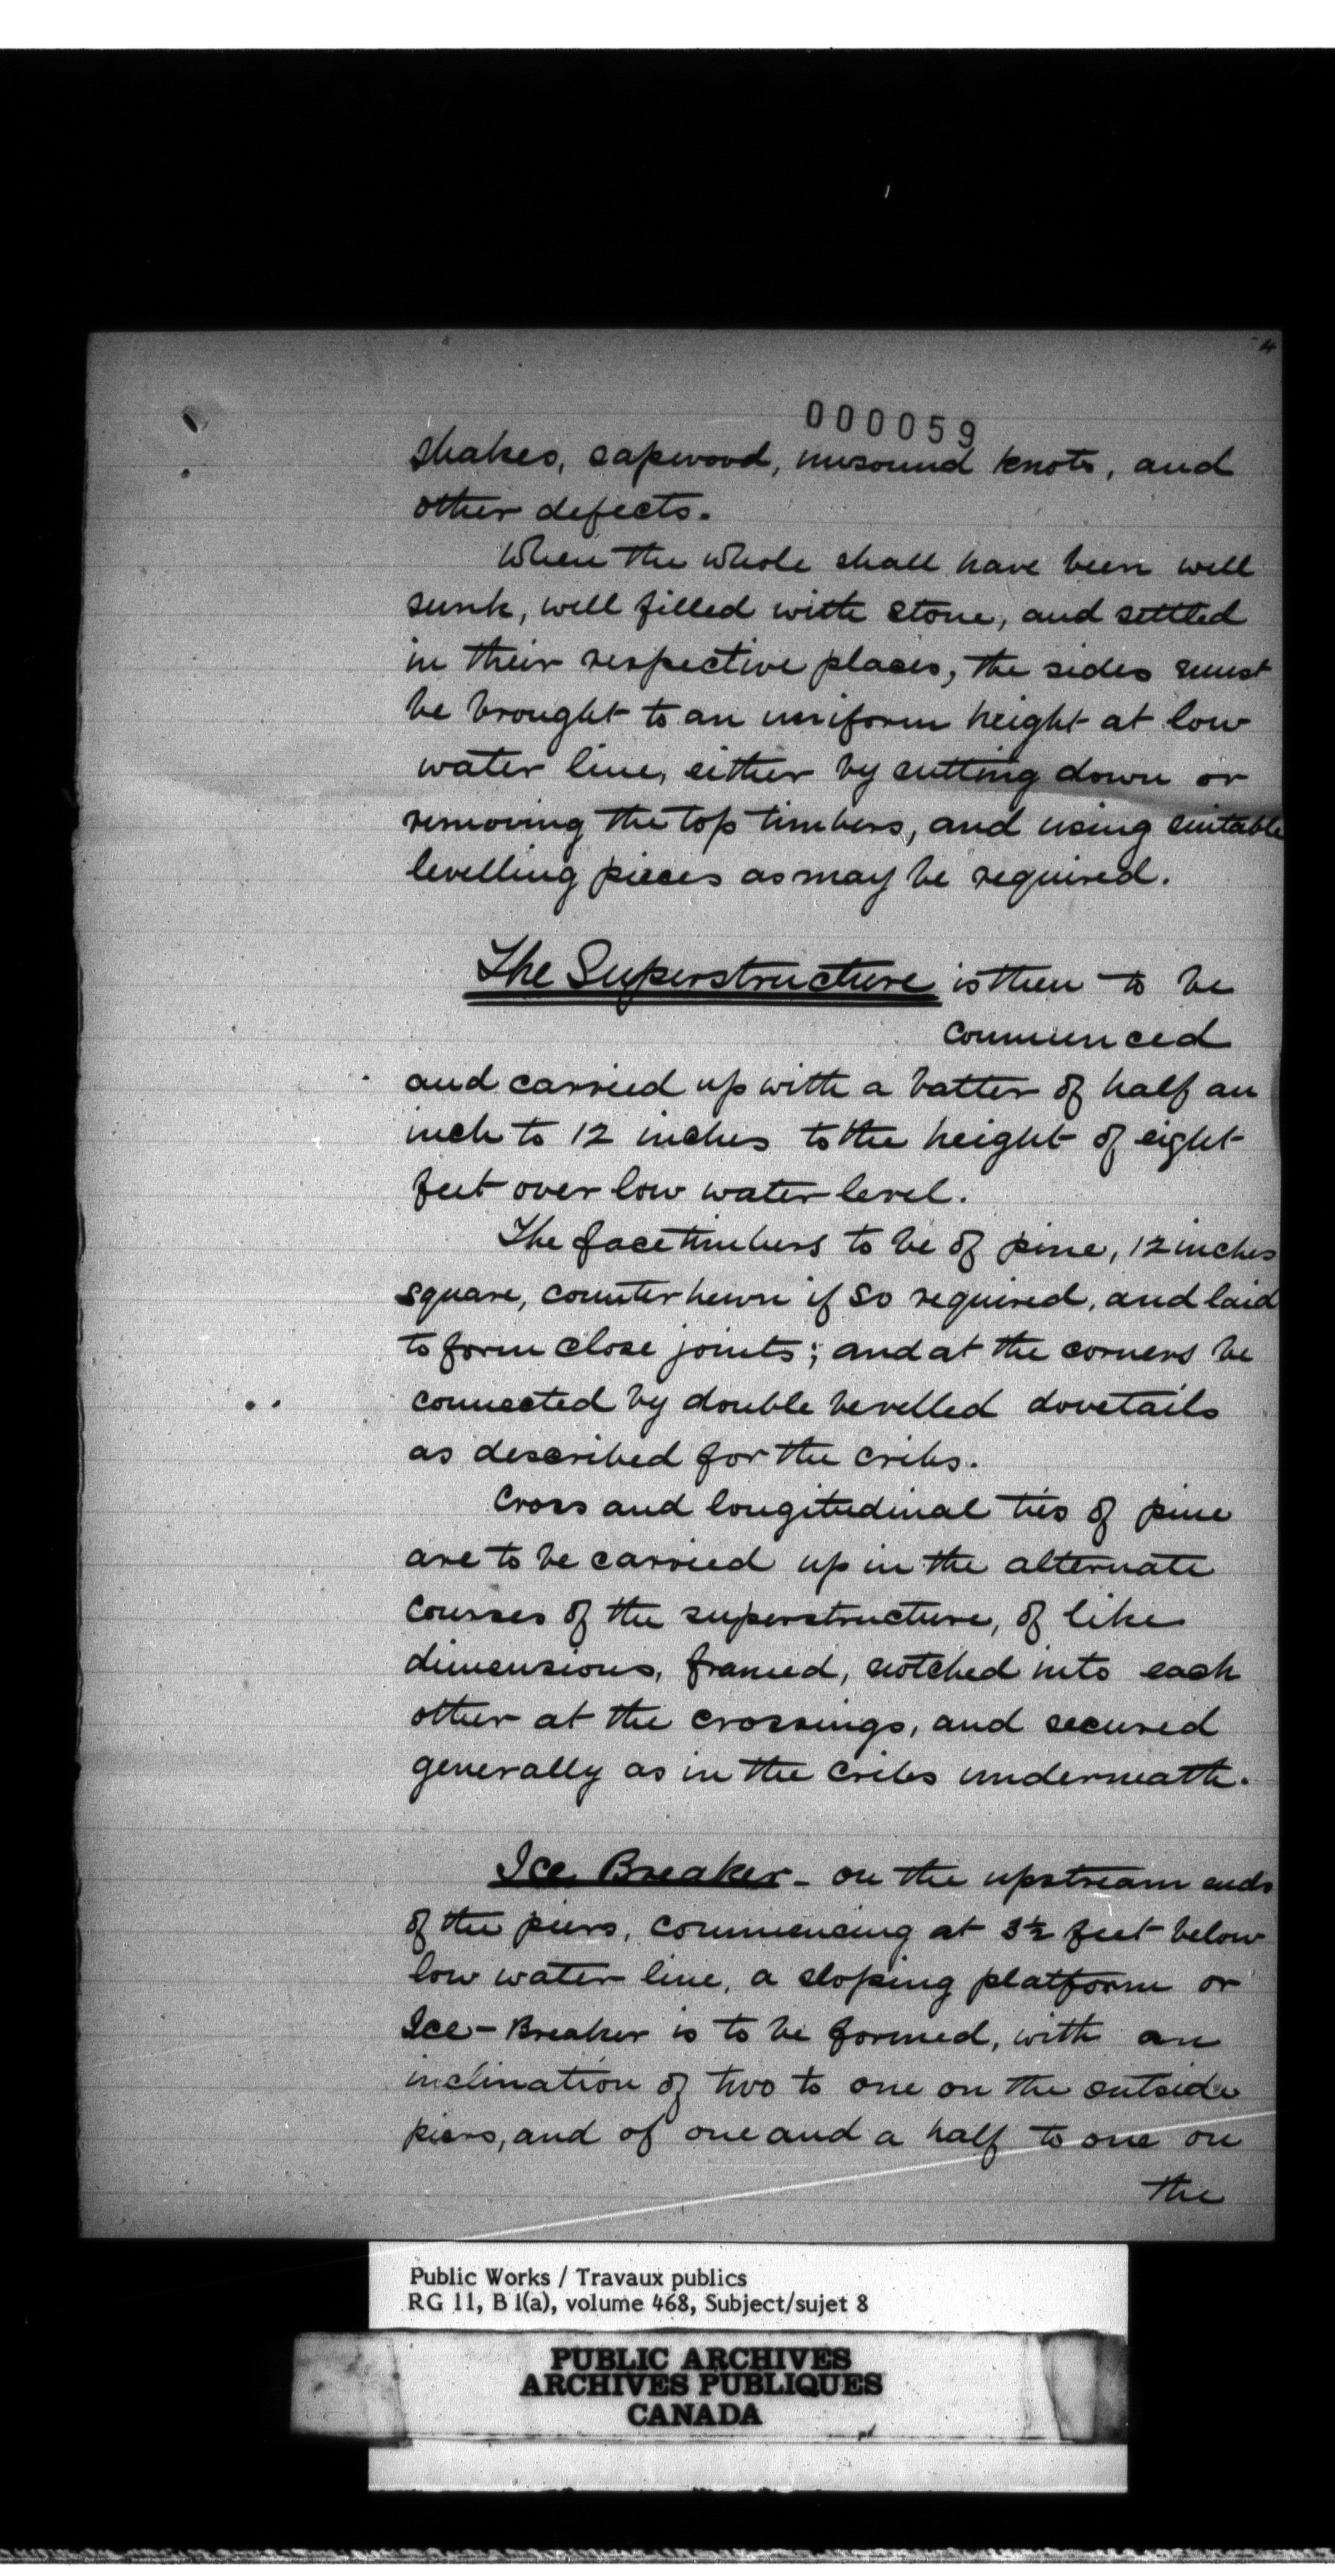 4
000059
shakes, sapwood, unsound knots, and
other defects.
When the whole shall have been well
sunk, well filled with stone, and settled
in their respective places, the sides must
be brought to an uniform height at low
water line, either by cutting down or
removing the top timbers, and using suitable
levelling pieces as may be required.
The Superstructure is then to be
commenced
and carried up with a batter of half an
inch to 12 inches to the height of eight
feet over low water level.
The face timbers to be of pine, 12 inches
square, counterhewn if so required, and laid
to form close joints; and at the corners be
connected by double bevelled dovetails
as described for the cribs.
Cross and longitudinal ties of pine
are to be carried up in the alternate
courses of the superstructure, of like
dimensions, framed, notched into each
other at the crossings, and secured
generally as in the cribs underneath.
Ice Breaker - on the upstream ends
of the piers, commencing at 3½ feet below
low water line, a sloping platform or
Ice-Breaker is to be formed, with an
inclination of two to one on the outside
piers, and of one and a half to one on
the
Public Works / Travaux publics
RG 11, B 1(a), volume 468, Subject/sujet 8
PUBLIC ARCHIVES
ARCHIVES PUBLIQUES
CANADA